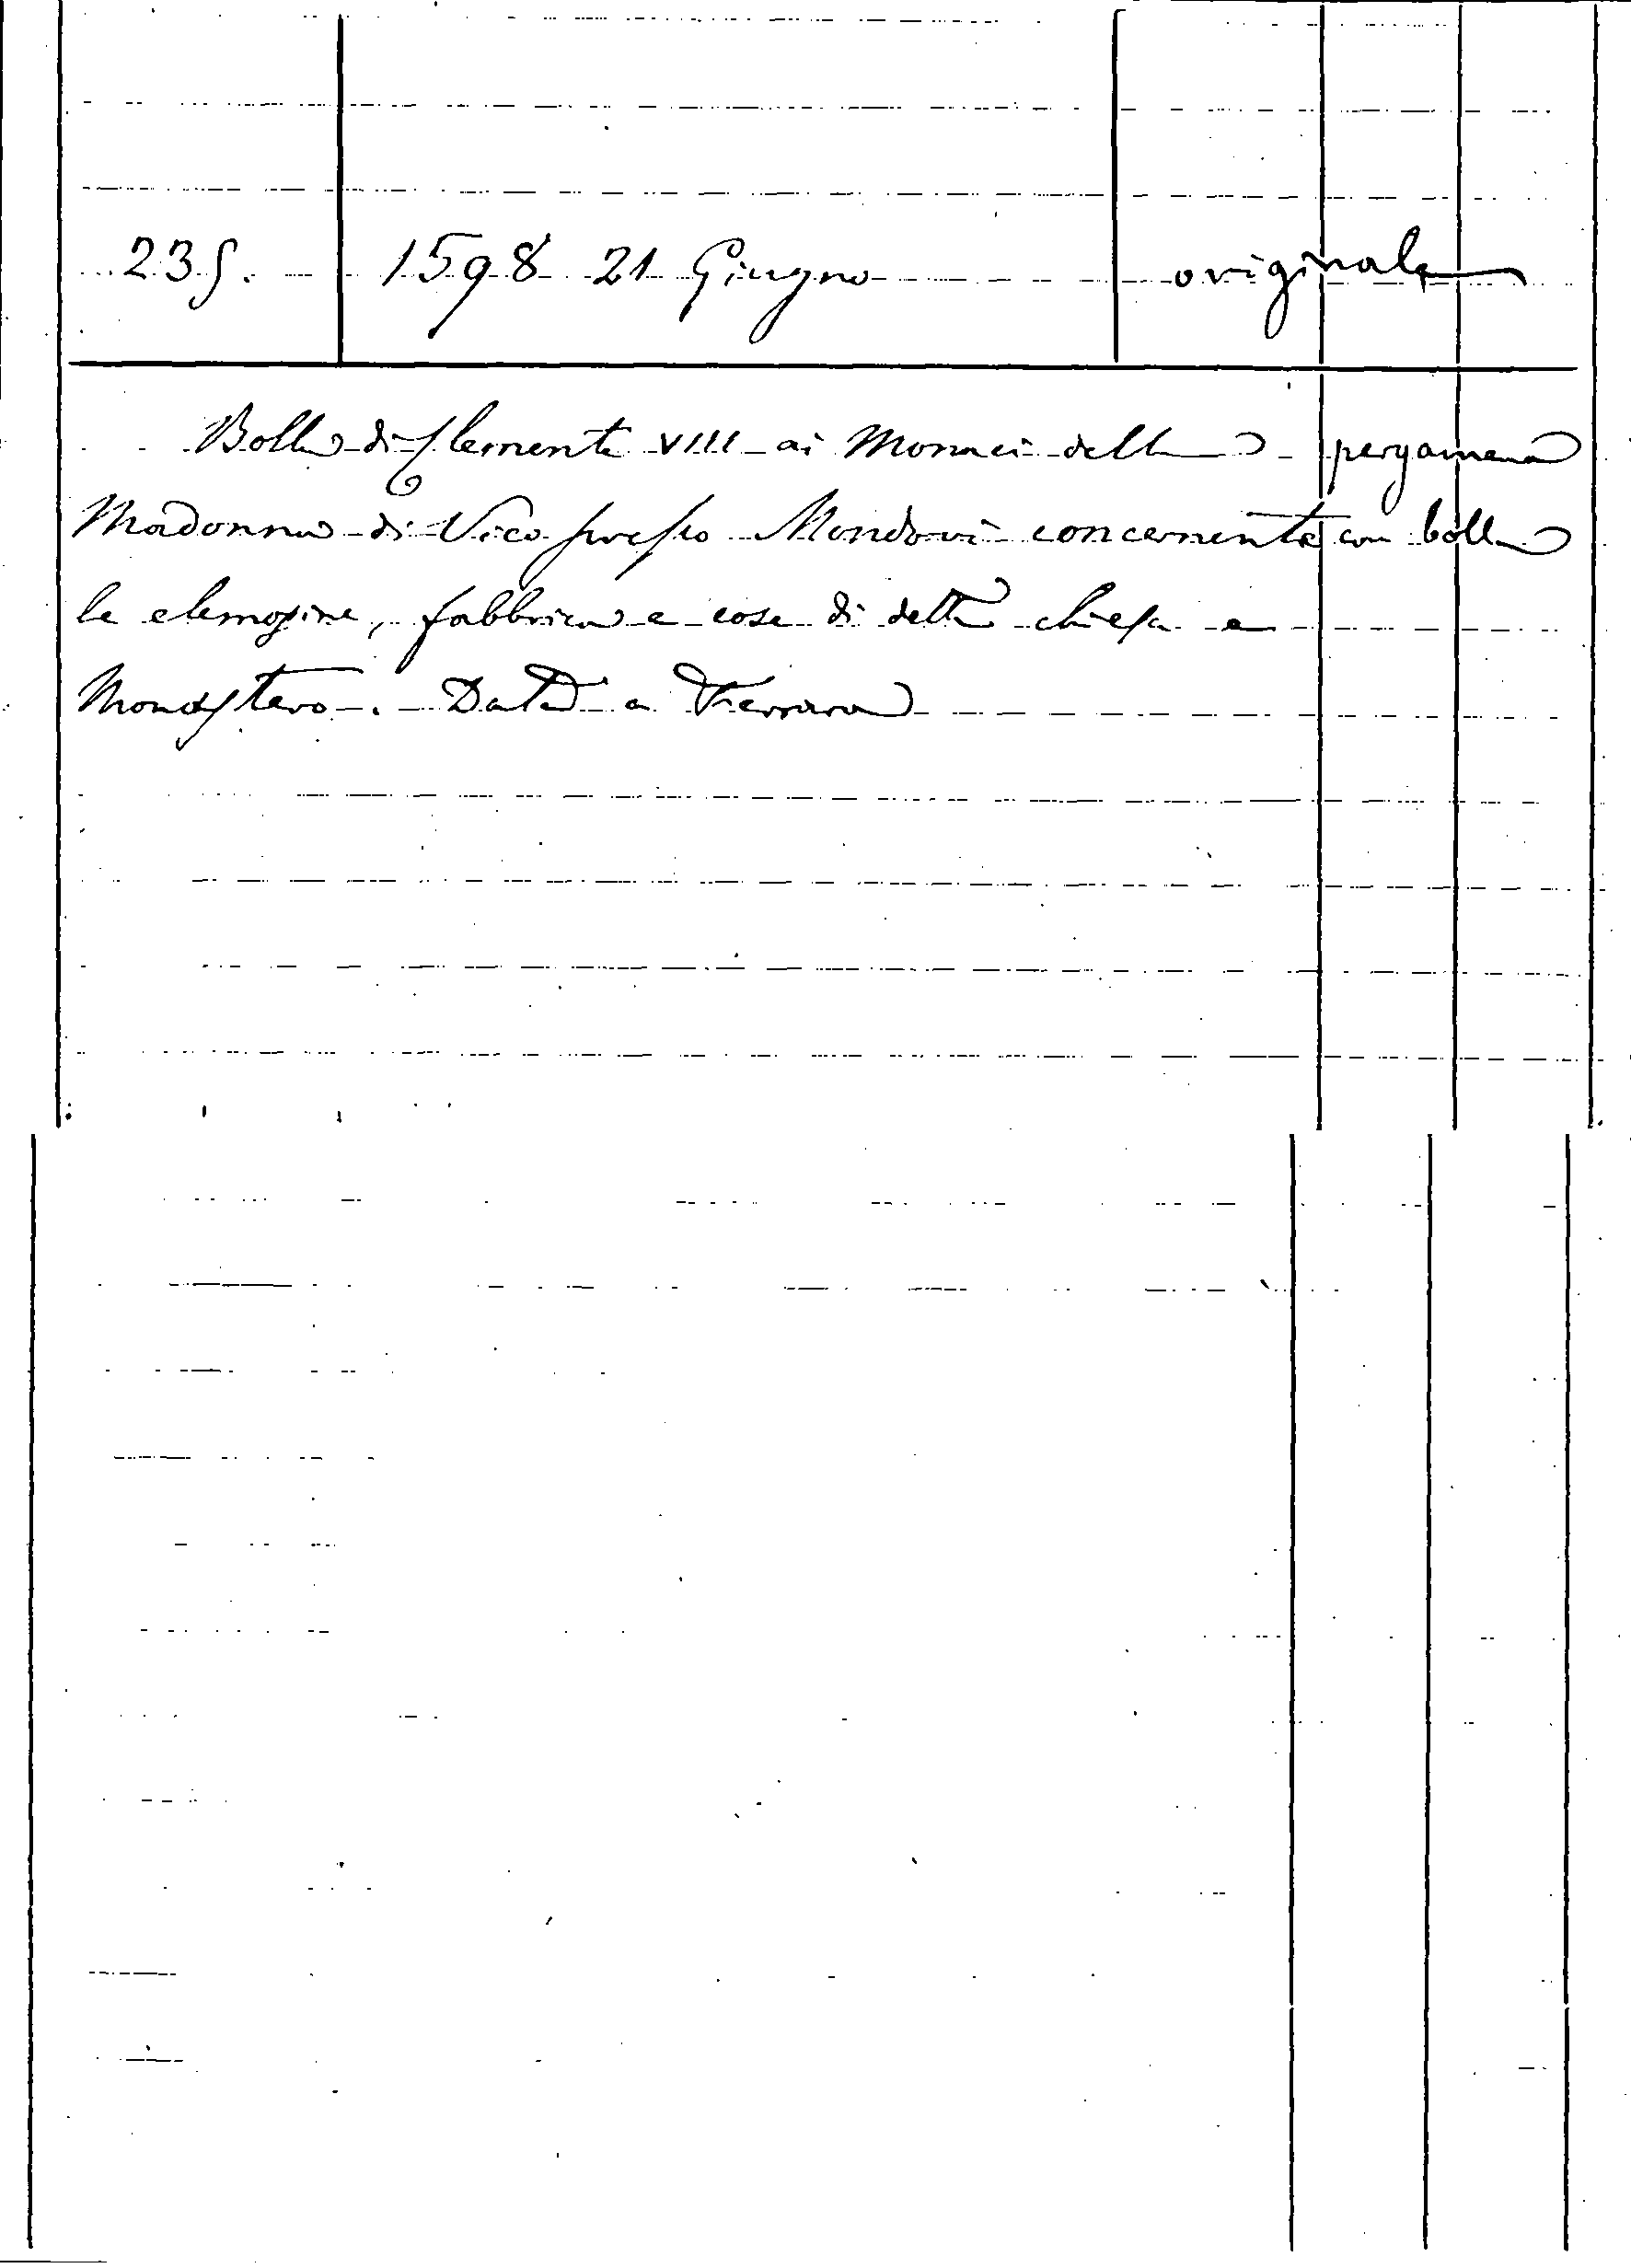 235. 1598 21 Giugno originale
Bolla di Clemente VIII ai Monaci della pergamena
Madonna di Vico presso Mondovì concernente con bolla
le elemosine, fabbrica e cose di detta chiesa e
Monastero. Data a Ferrara